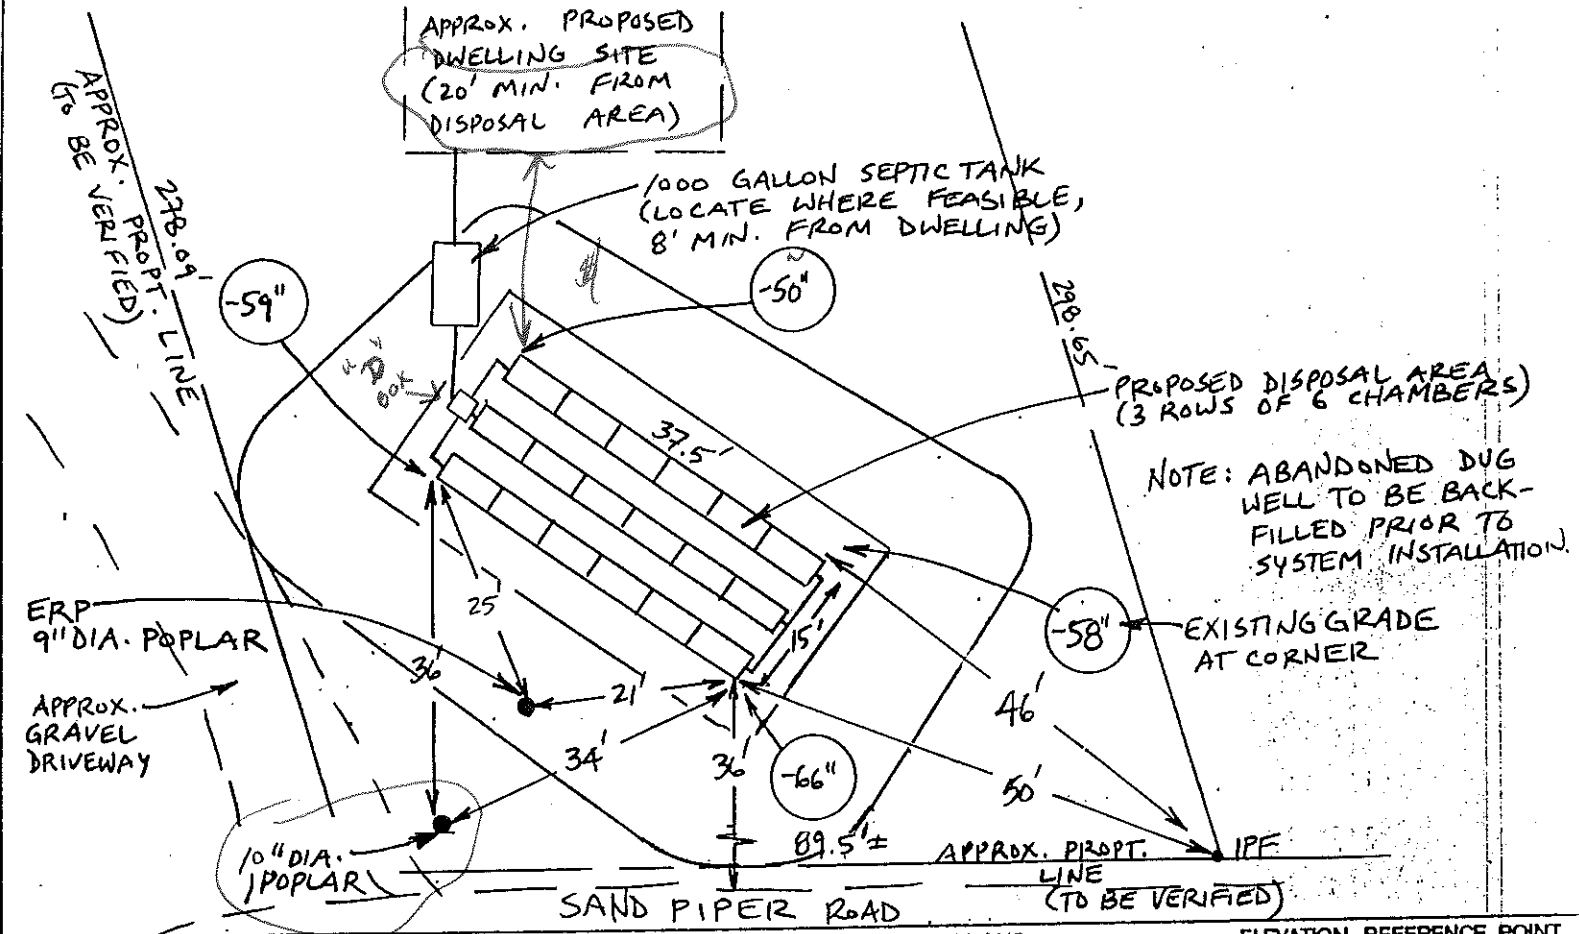 APPROX. PROPOSED
DWELLING SITE
(20' MIN. FROM
DISPOSAL AREA)
APPROX. PROPT. LINE
(TO BE VERIFIED)
278.09'
1000 GALLON SEPTIC TANK
(LOCATE WHERE FEASIBLE,
8' MIN. FROM DWELLING)
-59"
-50"
298.65'
"D"
BOX
PROPOSED DISPOSAL AREA
(3 ROWS OF 6 CHAMBERS)
37.5'
NOTE: ABANDONED DUG
WELL TO BE BACK-
FILLED PRIOR TO
SYSTEM INSTALLATION.
ERP
9" DIA. POPLAR
25'
15'
-58"
EXISTING GRADE
AT CORNER
36'
21'
46'
APPROX.
GRAVEL
DRIVEWAY
34'
36'
-66"
50'
10" DIA.
POPLAR
89.5'±
APPROX. PROPT.
LINE
(TO BE VERIFIED)
IPF
SAND PIPER ROAD
ELEVATION REFERENCE POINT